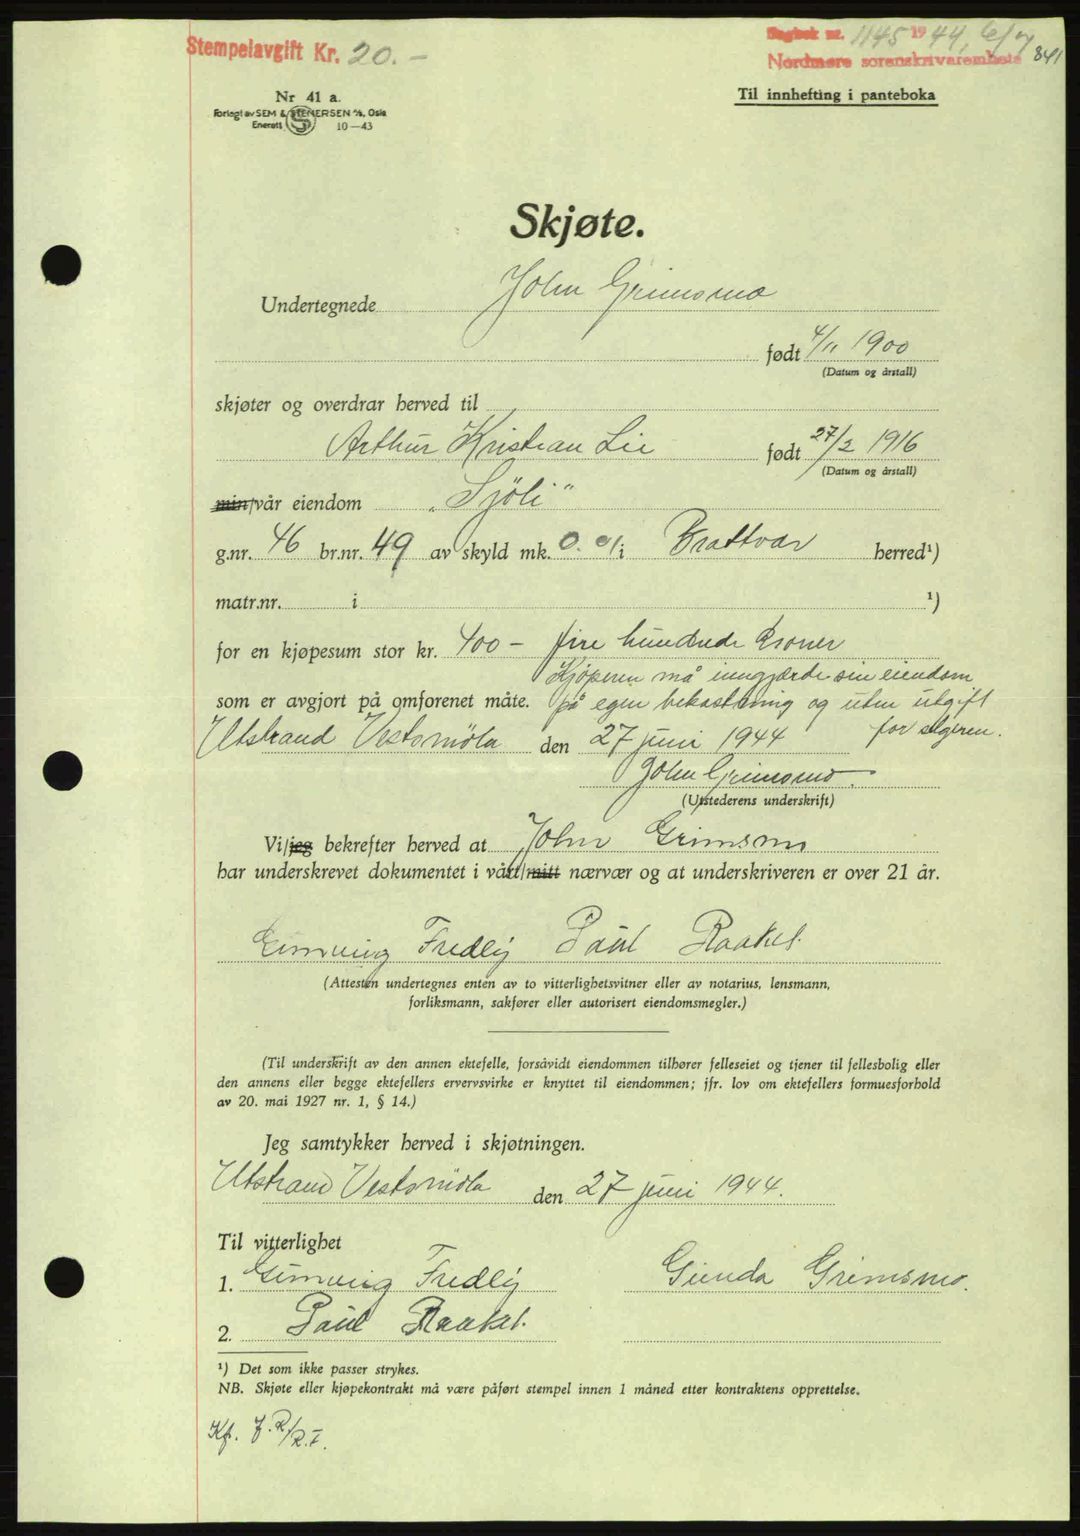 Stempelavgift Kr. 20.-
Dagbok nr. 1145 1944, 6/7
Nordmøre sorenskrivarembete
841
Nr 41 a.
Forlagt av SEM & STENERSEN A/S, Oslo
Enerett 10-43
Til innhefting i panteboka
Skjøte.
Undertegnede John Grimsmo
født 4/11 1900
(Datum og årstall)
skjøter og overdrar herved til
Arthur Kristian Lie født 27/2 1916
(Datum og årstall)
min/vår eiendom "Sjöli"
g.nr. 46 br.nr. 49 av skyld mk. 0.01 i Brattvær herred¹)
matr.nr. i ¹)
for en kjøpesum stor kr. 400 - fire hundrede Kroner
Kjöperen må inngjærde sin eiendom
som er avgjort på omforenet måte. på egen bekostning og uten utgift
for selgeren.
Utstrand Vestsmöla den 27 juni 1944
John Grimsmo.
(Utstederens underskrift)
Vi/jeg bekrefter herved at John Grimsmo
har underskrevet dokumentet i vårt/mitt nærvær og at underskriveren er over 21 år.
Fredly Paul Raaket
(Attesten undertegnes enten av to vitterlighetsvitner eller av notarius, lensmann,
forliksmann, sakfører eller autorisert eiendomsmegler.)
(Til underskrift av den annen ektefelle, forsåvidt eiendommen tilhører felleseiet og tjener til fellesbolig eller
den annens eller begge ektefellers ervervsvirke er knyttet til eiendommen; jfr. lov om ektefellers formuesforhold
av 20. mai 1927 nr. 1, § 14.)
Jeg samtykker herved i skjøtningen.
Utstrand Vestsmöla den 27 juni 1944.
Til vitterlighet
1. Fredly Gunda Grimsmo.
2. Paul Raaket.
¹) Det som ikke passer strykes.
NB. Skjøte eller kjøpekontrakt må være påført stempel innen 1 måned etter kontraktens opprettelse.
Kf. J.R/R.F.